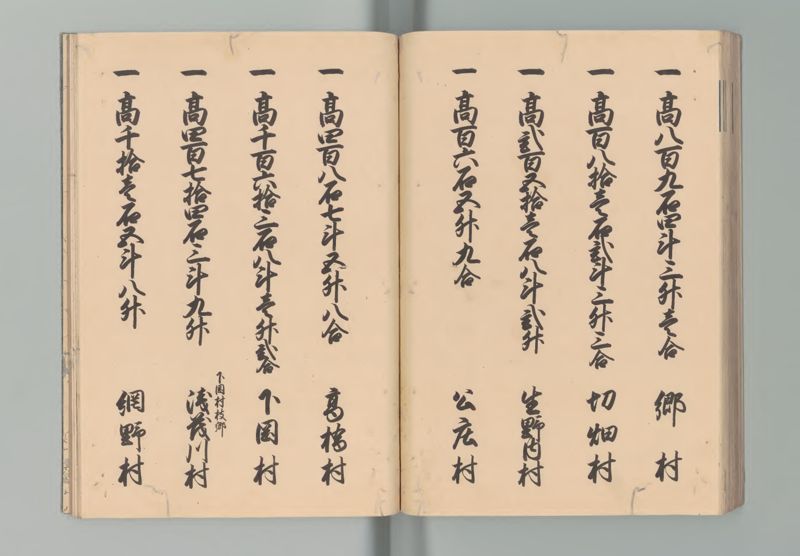 一高八百九石四斗三升壱合　郷村
一高百八拾壱石弐斗三升三合　切畑村
一高弐百五拾壱石八斗弐升　生野内村
一高百六石五升九合　公庄村
一高四百八石七斗五升八合　高橋村
一高千百六拾三石八斗壱升弐合　下岡村
下岡村枝郷
一高四百七拾四石三斗九升　浅茂川村
一高千拾壱石五斗八升　網野村